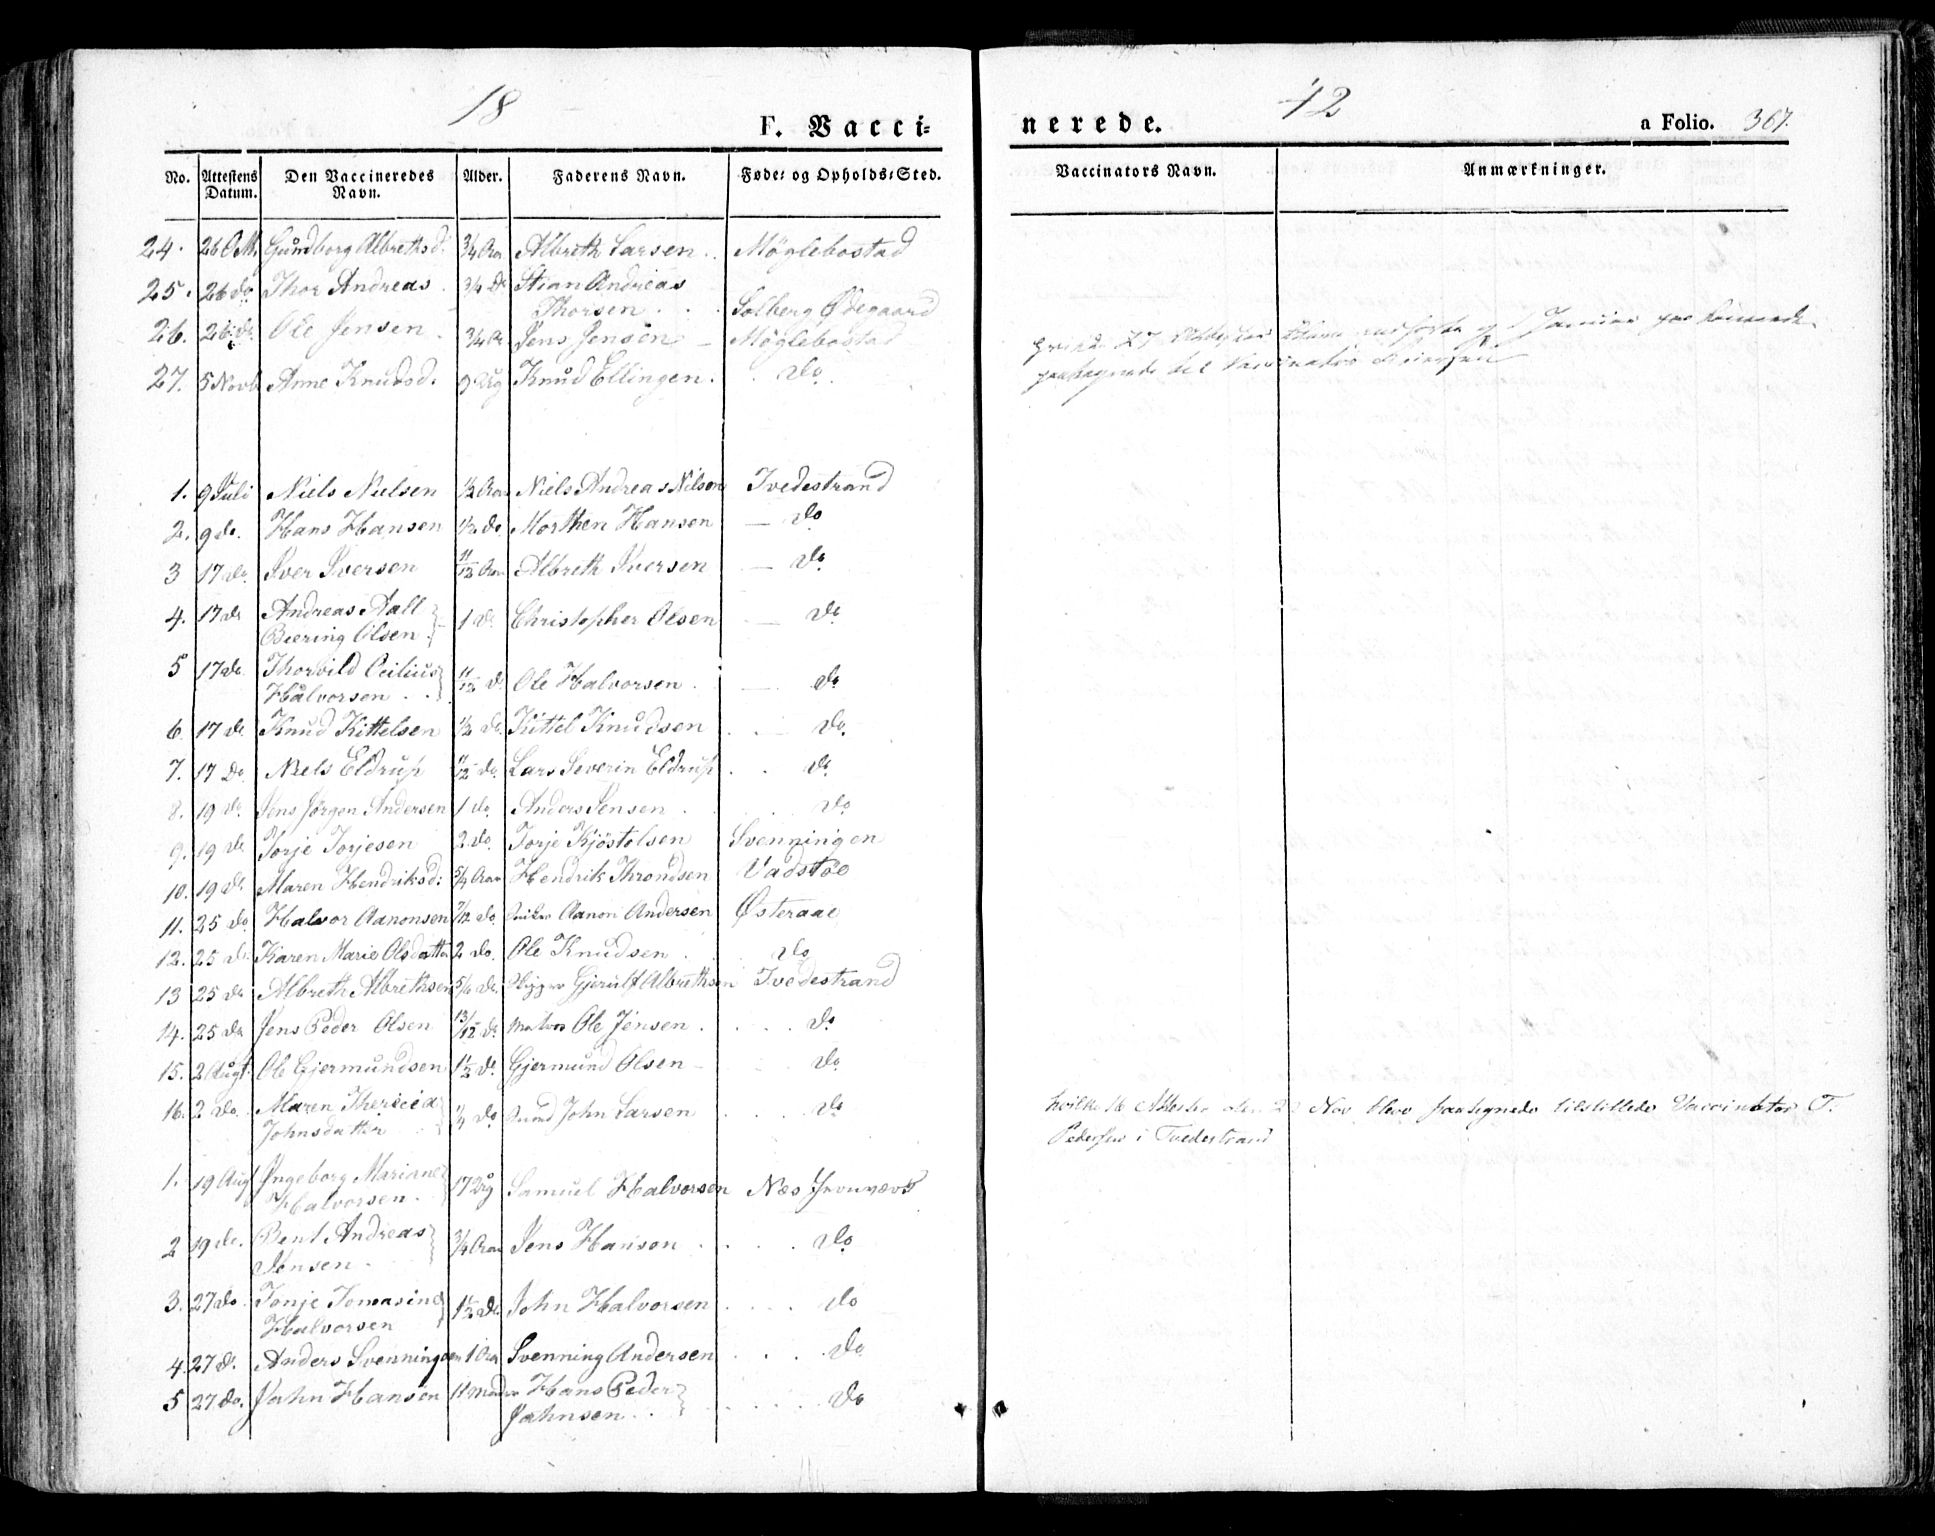 18
42
F. Vacci=
nerede.
a Folio. 367.
No. Attestens Datum. Den Vaccineredes Navn. Alder. Faderens Navn. Føde= og Opholds=Sted.
Vaccinators Navn. Anmærkninger.
24. 26 Gundborg Albrethsd. 3/4 Aar Albreth Larsen. Møglebostad
25. 26 do Thor Andreas 3/4 Do Stian Andreas
Thorsen. Solberg Ødegaard
26. 26 do. Ole Jensen 3/4 Jens Jensen Møglebostad
27. 5 Novb Anne Knudsd. 9 Knud Ellingen. Do
1. 9 Juli Niels Nielsen 1/2 Aar Niels Andreas Nilsen Tvedestrand
2. 9 do. Hans Hansen 1/2 do. Morthen Hansen — Do
3 17 do. Iver Iversen 11/12 Aar Albreth Iversen — Do
4. 17 do Andreas Aall
Biering Olsen 1 Do Christopher Olsen — Do
5 17 do Thorvild Ceilius
Halvorsen 11/12 Do Ole Halvorsen. — Do
6 17 do Knud Kittelsen 1/2 do Kittel Knudsen Do.
7. 17 Do. Niels Eldrup 11/12 do. Lars Severin Eldrup Do
8. 19 do Jens Jørgen Andersen 1 do. Anders Jensen Do
9. 19 do Torje Torjesen 2 do. Torje Kjöstelsen Svenningen
10. 19 do Maren Hendriksd: 5/4 Aar Hendrik Throndsen Vadstøe
11. 25 do Halvor Aanonsen 7/12 do. Aanon Andersen Østeraae
12. 25 do Karen Marie Olsdatter 2 do. Ole Knudsen Do
13 25 do Albreth Albrethsen 5/6 do. Gjerulf Albrethsen Tvedestrand
14. 25 do Jens Peder Olsen 13/12 do. Matros Ole Jensen. Do
15. 2 Augt. Ole Gjermundsen 1 1/2 do. Gjermund Olsen Do
16. 2 do. Maren Thericia
Johnsdatter do John Larsen Do
Nov blevo tilstillede Vaccinator T.
Pedersen i Tvedestrand
1. 19 Aug Ingeborg Mariane
Halvorsen. 17 Samuel Halvorsen Næs Jernværk
2 19 do. Bent Andreas
Jensen. 3/4 Aar Jens Hanson Do
3. 27 do Tonje Tomasine
Halvorsen 1 1/2 do John Halvorsen Do
4. 27 do. Anders Svenningsen 1 Aar Svenning Andersen Do
5 27 do. Jahn Hansen 11 Hans Peder
Jahnsen Do